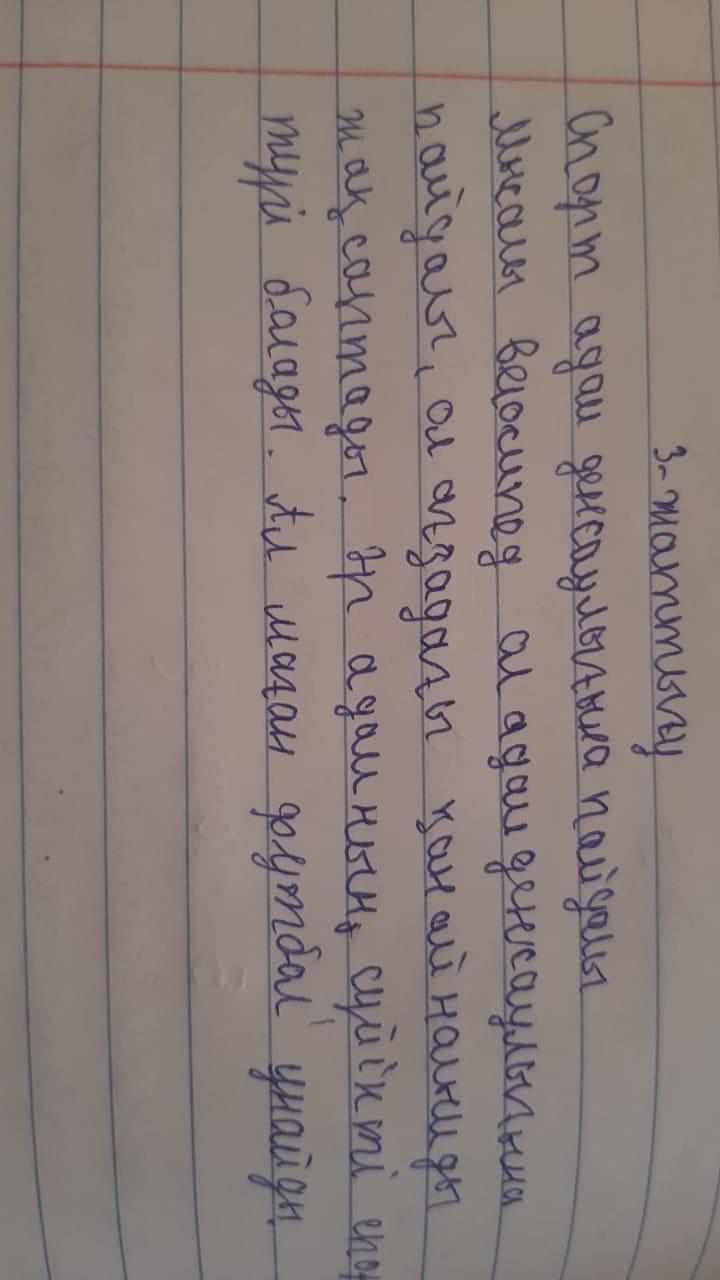 3-жаттығу
Спорт адам денсаулығына пайдалы
Мысалы велосипед ол адам денсаулығына
пайдалы, ол ағзадағы қан айналымды
жақсартады. Әр адамның сүйікті спор
түрі болады. Ал маған футбол ұнайды.